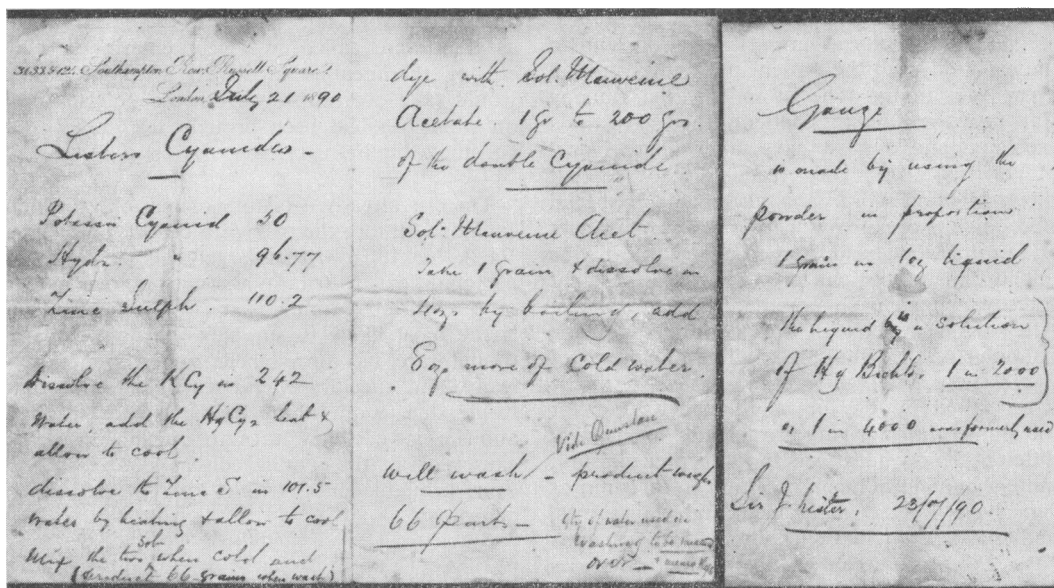 31.33 & 124 Southampton Row, Russell Square
London July 21 1890
Listers Cyanides -
Potassm Cyanid 50
Hydr. " 96.77
Zinc Sulph. 110.2
dissolve the KCy in 242
water, add the HgCy2 heat &
allow to cool.
dissolve the Zinc S in 101.5
water by heating & allow to cool
Mix the two sol when cold and
(product 66 grains when wash)
dye with Sol. Mauveine
Acetate. 1 gr to 200 grs.
of the double Cyanide
Sol. Mauveine Acet.
Take 1 grain & dissolve in
by boiling, add
more of Cold water.
Vide Dunstan
well wash - product weighs
66 parts -
qty of water used in
washing to be
over -
Gauze
is made by using the
powder in proportions
1 grain in 1oz liquid
the liquid is a solution
of Hg Bichlr. 1 in 2000
or 1 in 4000 was formerly used
Sir J. Lister. 23/07/90.